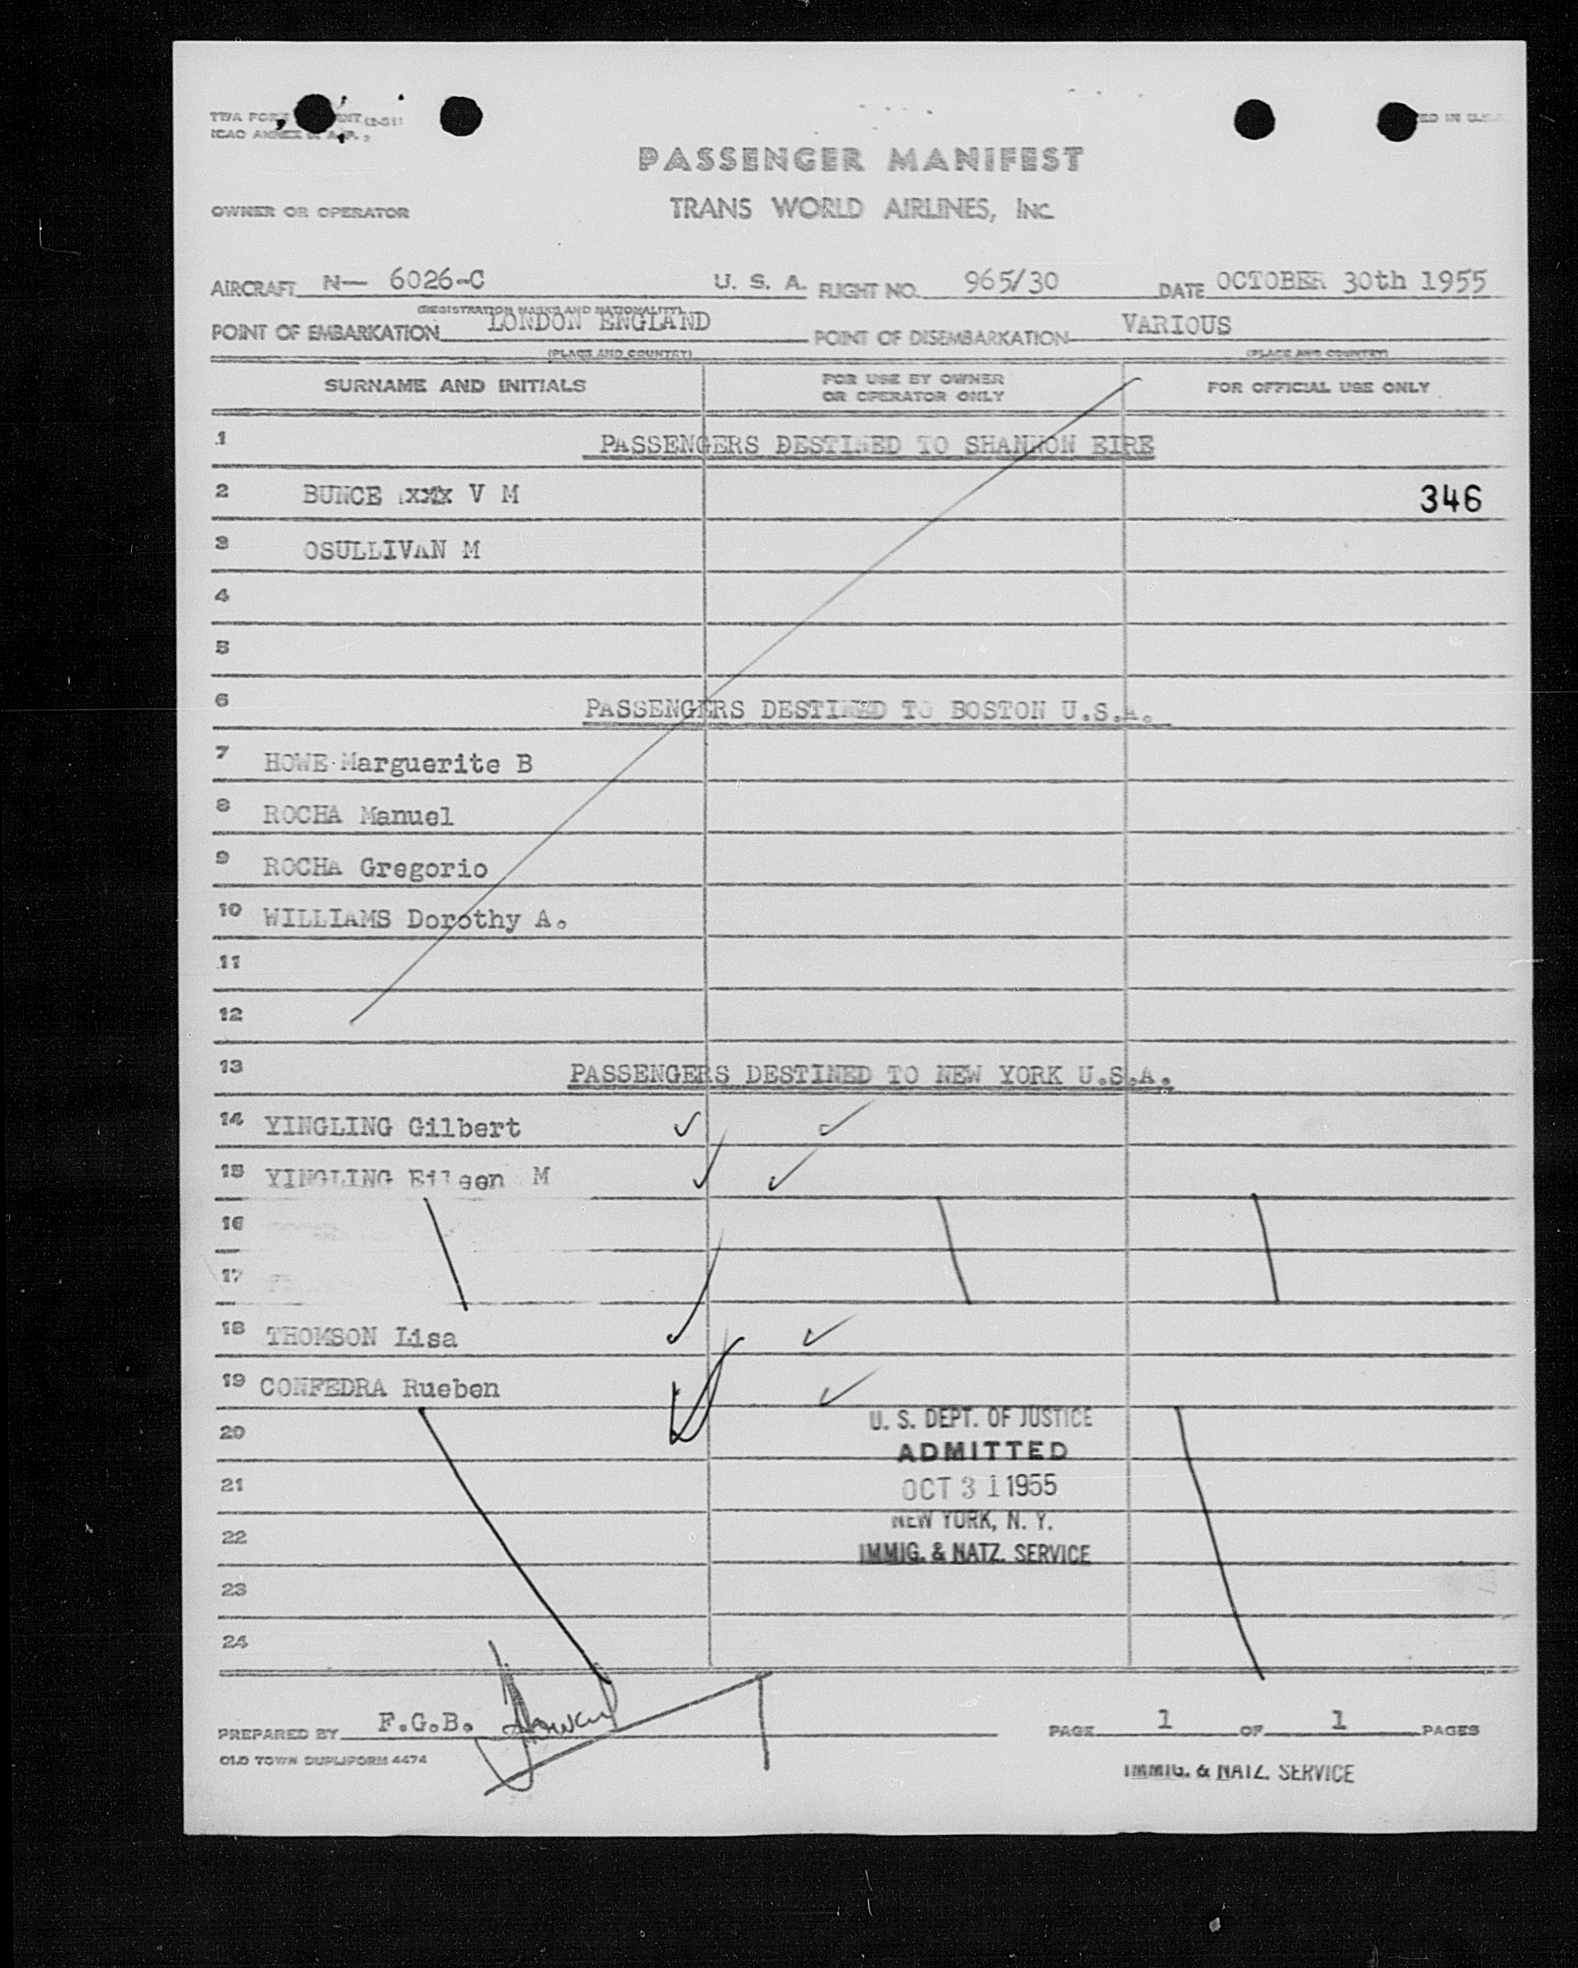 PASSENGER MANIFEST
OWNER OR OPERATOR TRANS WORLD AIRLINES, INC.
AIRCRAFT N— 6026-C U. S. A. FLIGHT NO. 965/30 DATE OCTOBER 30th 1955
(REGISTRATION MARKS AND NATIONALITY)
POINT OF EMBARKATION LONDON ENGLAND POINT OF DISEMBARKATION VARIOUS
(PLACE AND COUNTRY) (PLACE AND COUNTRY)
SURNAME AND INITIALS FOR USE BY OWNER OR OPERATOR ONLY FOR OFFICIAL USE ONLY
1 PASSENGERS DESTINED TO SHANNON EIRE
2 BUNCE V M 346
3 OSULLIVAN M
4
5
6 PASSENGERS DESTINED TO BOSTON U.S.A.
7 HOWE Marguerite B
8 ROCHA Manuel
9 ROCHA Gregorio
10 WILLIAMS Dorothy A.
11
12
13 PASSENGERS DESTINED TO NEW YORK U.S.A.
14 YINGLING Gilbert
15 YINGLING Eileen M
16
17
18 THOMSON Lisa
19 CONFEDRA Rueben
20
21
22
23
24
U. S. DEPT. OF JUSTICE
ADMITTED
OCT 31 1955
NEW YORK, N. Y.
IMMIG. & NATZ. SERVICE
PREPARED BY F.G.B. PAGE 1 OF 1 PAGES
OLD TOWN DUPLIFORM 4474
IMMIG. & NATZ. SERVICE